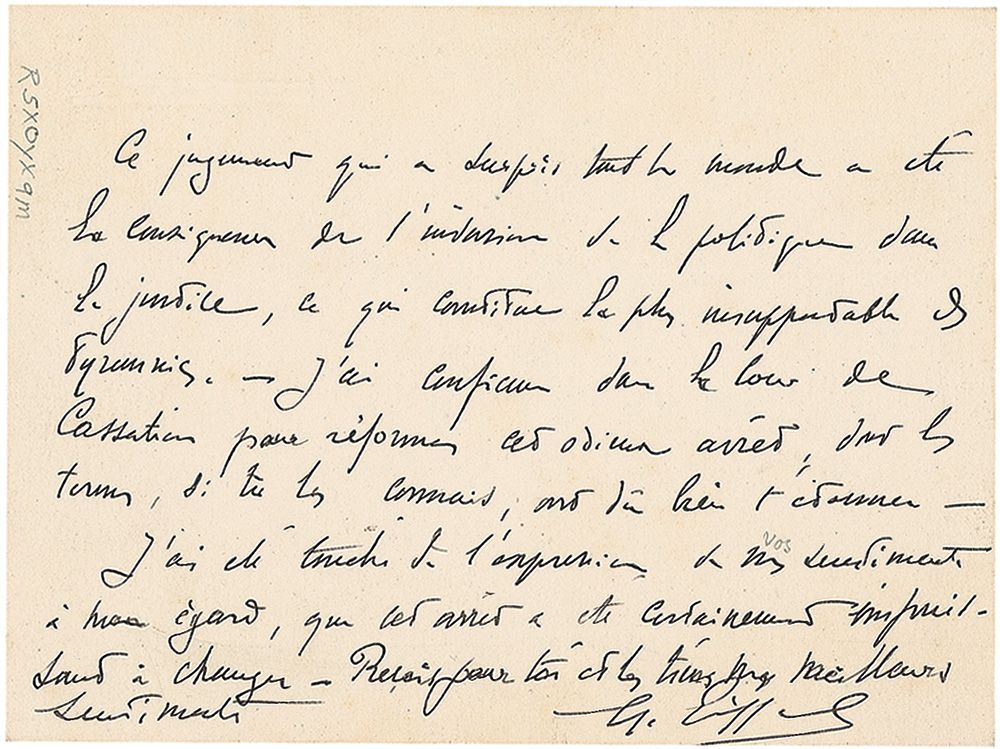 Ce jugement qui a surpris tout le monde a été
la conséquence de l'intrusion de la politique dans
la justice, ce qui constitue la plus insupportable des
tyrannies. — J'ai confiance dans la Cour de
Cassation pour réformer cet odieux arrêt, dont les
termes, si tu les connais, ont dû bien t'étonner —
J'ai été touché de l'expression de vos sentiments
à mon égard, que cet arrêt a été certainement impuis-
sant à changer — Reçois pour toi et les tiens mes meilleurs
sentiments G. Eiffel
vos
R5XOyxqm